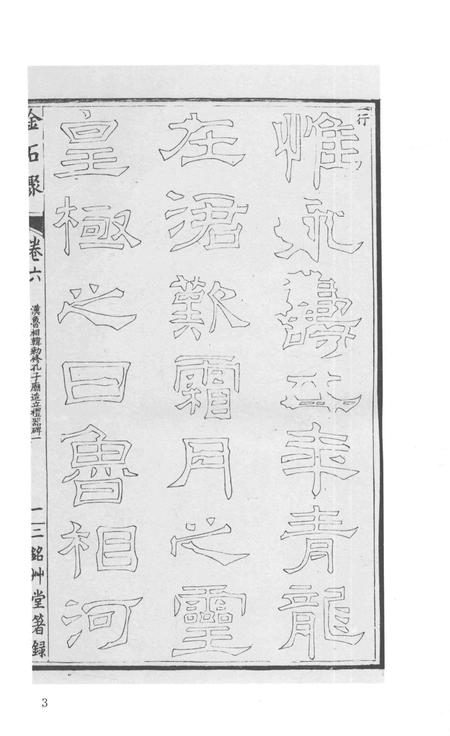 一行
惟永壽二年青龍
在涒歎霜月之靈
皇極之日魯相河
金石聚
卷六
漢魯相韓勅修孔子廟造立禮器碑一
二銘艸堂箸錄
3